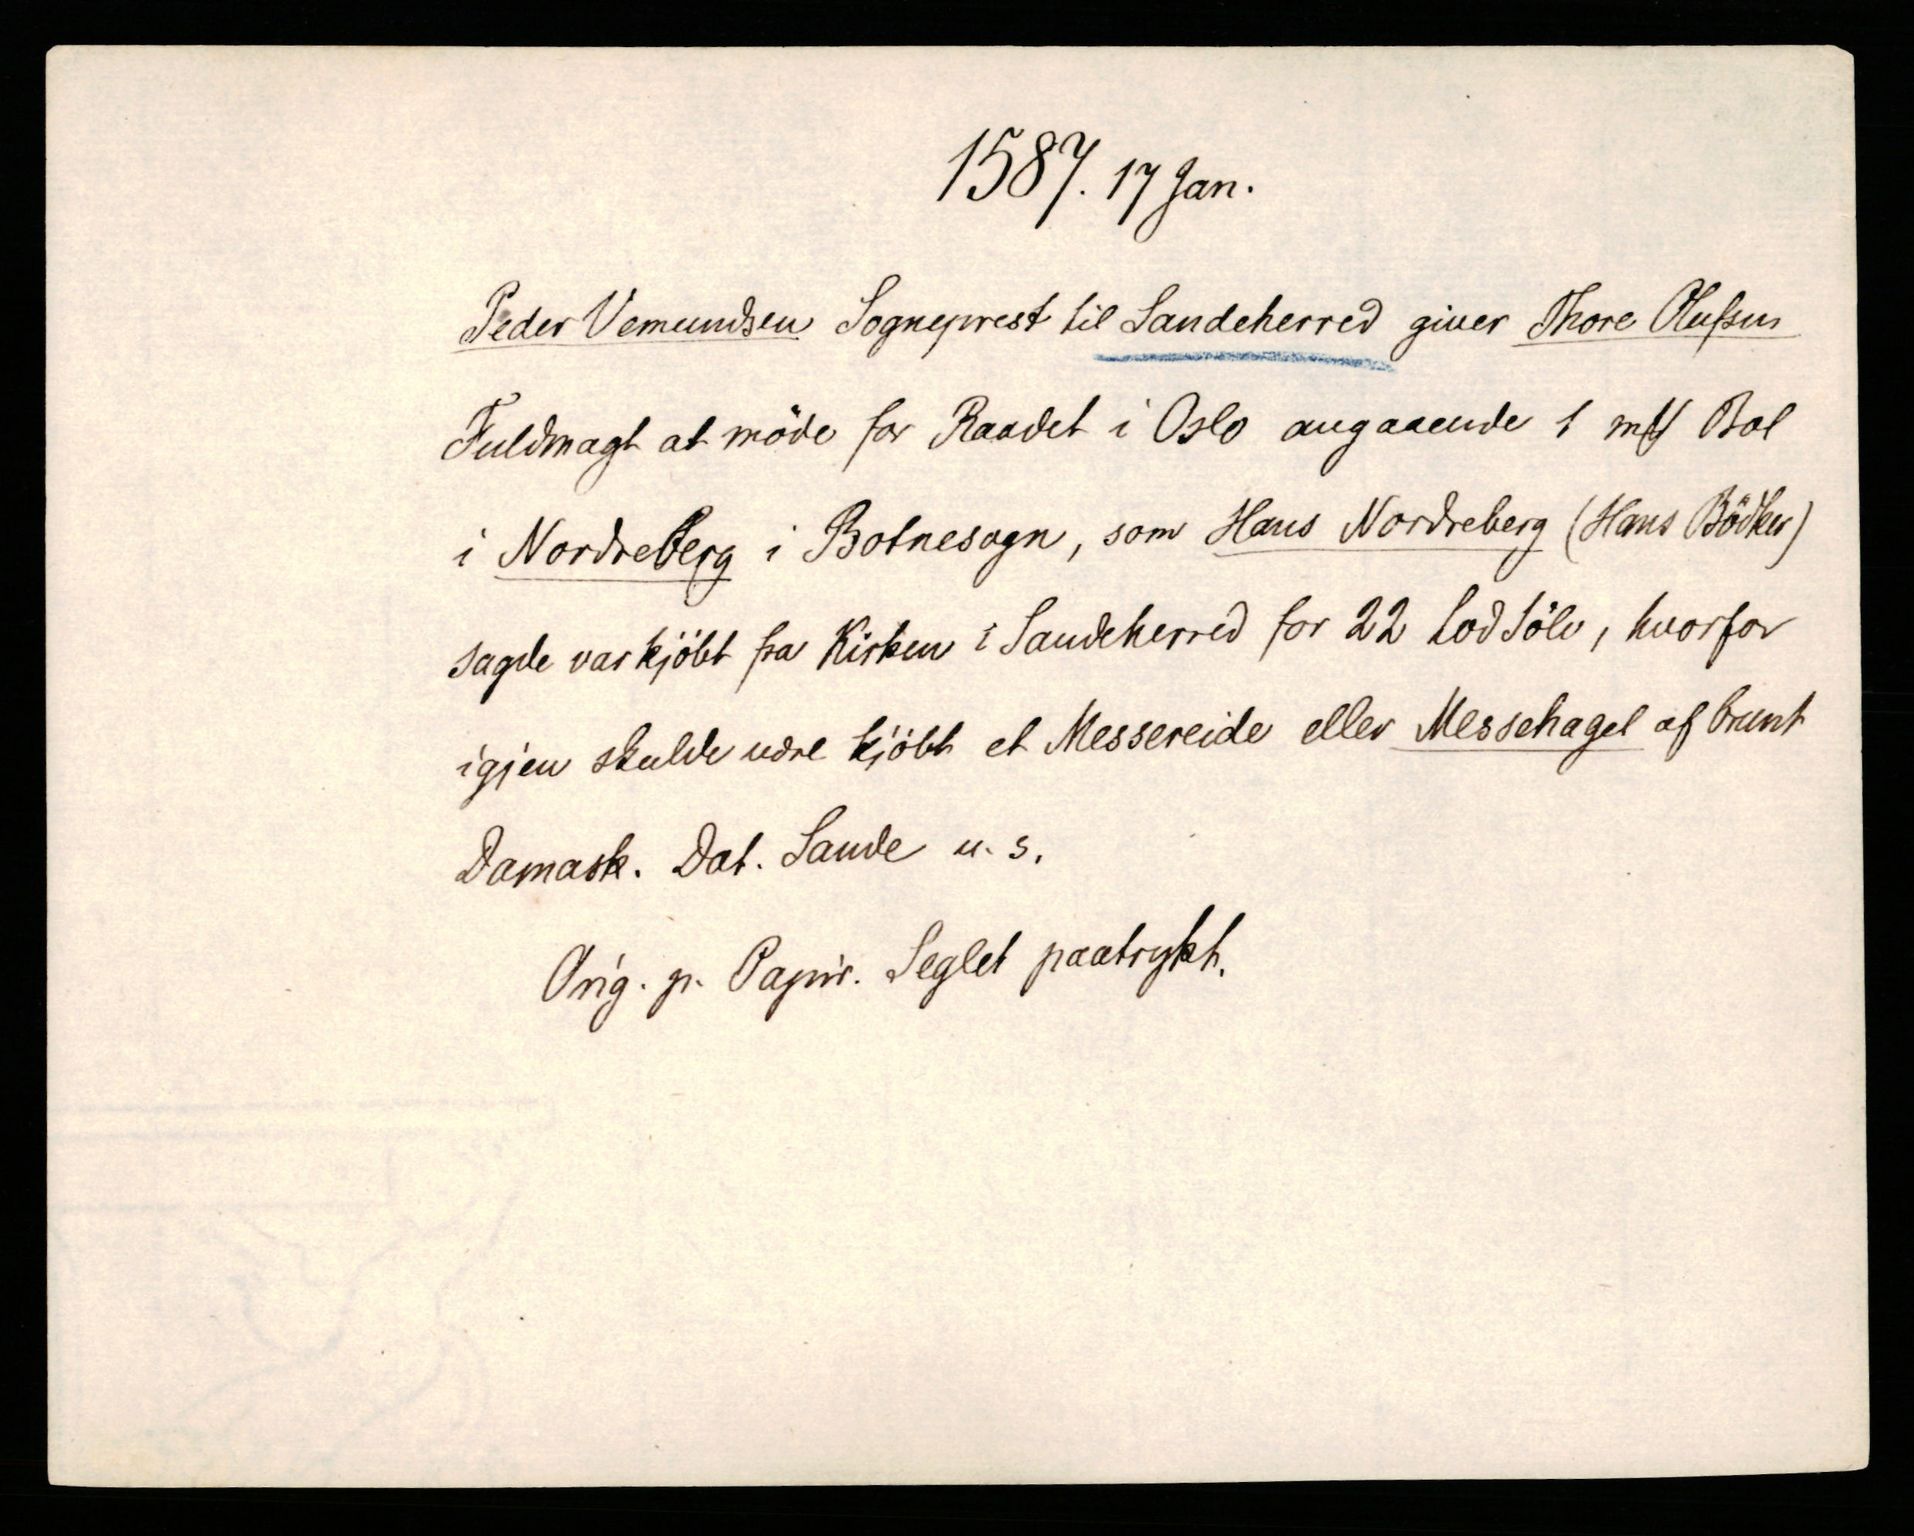 1587. 17 Jan.
Peder Vemundsen Sogneprest til Sandeherred giver Thore Olufsen
Fuldmagt at möde for Raadet i Oslo angaaende 1 mk Bol
i Nordreberg i Botnesogn, som Hans Nordreberg (Hans Bödker)
sagde var kjöbt fra Kirken i Sandeherred for 22 Lod Sölv, hvorfor
igjen skulde være kjöbt et Messereide eller Messehagel af brunt
Damask. Dat. Sande u. s.
Orig. p. Papir. Seglet paatrykt.